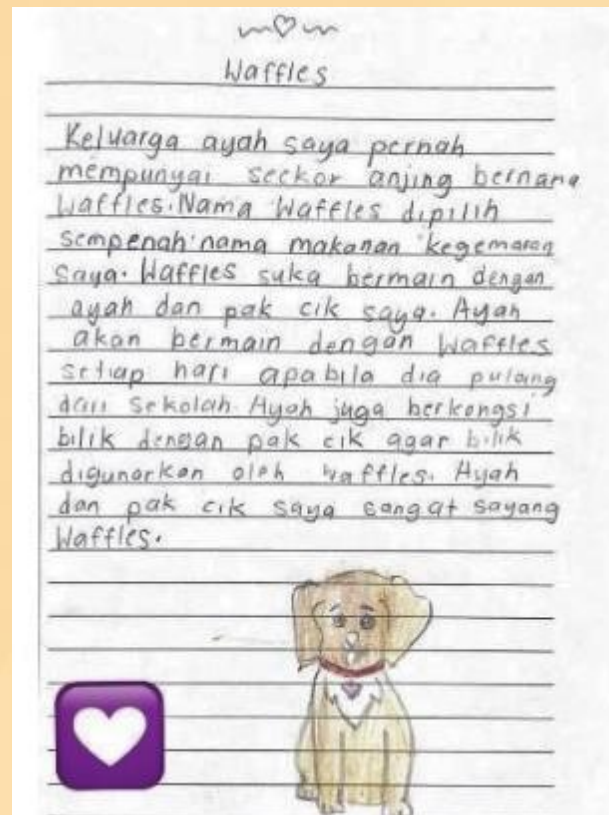 Waffles
Keluarga ayah saya pernah
mempunyai seekor anjing bernama
Waffles. Nama Waffles dipilih
sempenah nama makanan kegemaran
saya. Waffles suka bermain dengan
ayah dan pak cik saya. Ayah
akan bermain dengan Waffles
setiap hari apabila dia pulang
dari sekolah. Ayah juga berkongsi
bilik dengan pak cik agar bilik
digunarkan oleh Waffles. Ayah
dan pak cik saya sangat sayang
Waffles.